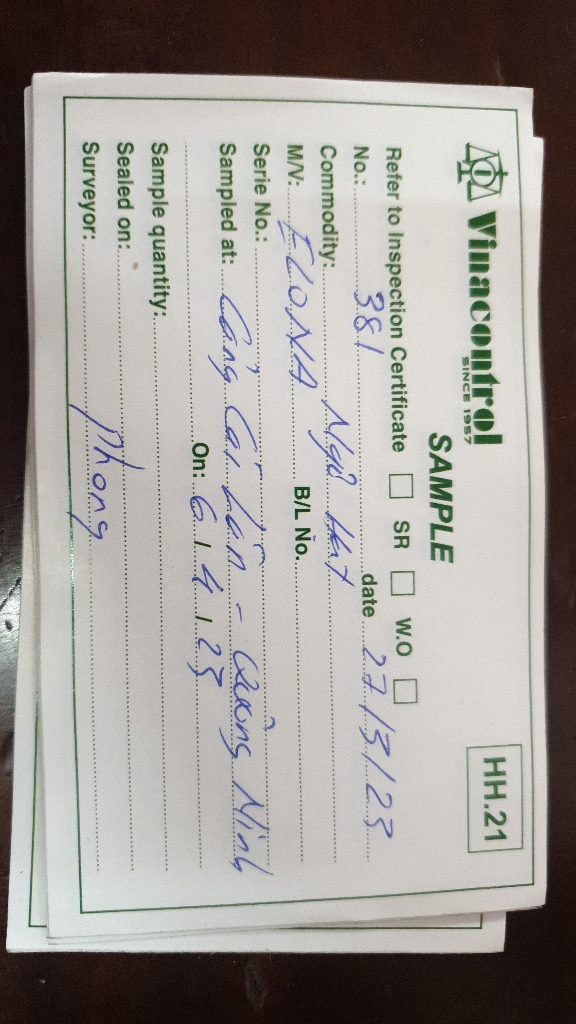 Vinacontrol
SINCE 1957
HH.21
SAMPLE
Refer to Inspection Certificate ☐ SR ☐ W.O ☐
No.: 381 date 27/3/23
Commodity: Ngô Hạt
M/V: ILONA B/L No.
Serie No.:
Sampled at: Cảng Cái Lân - Quảng Ninh
On: 6 / 4 / 23
Sample quantity:
Sealed on:
Surveyor: Phong